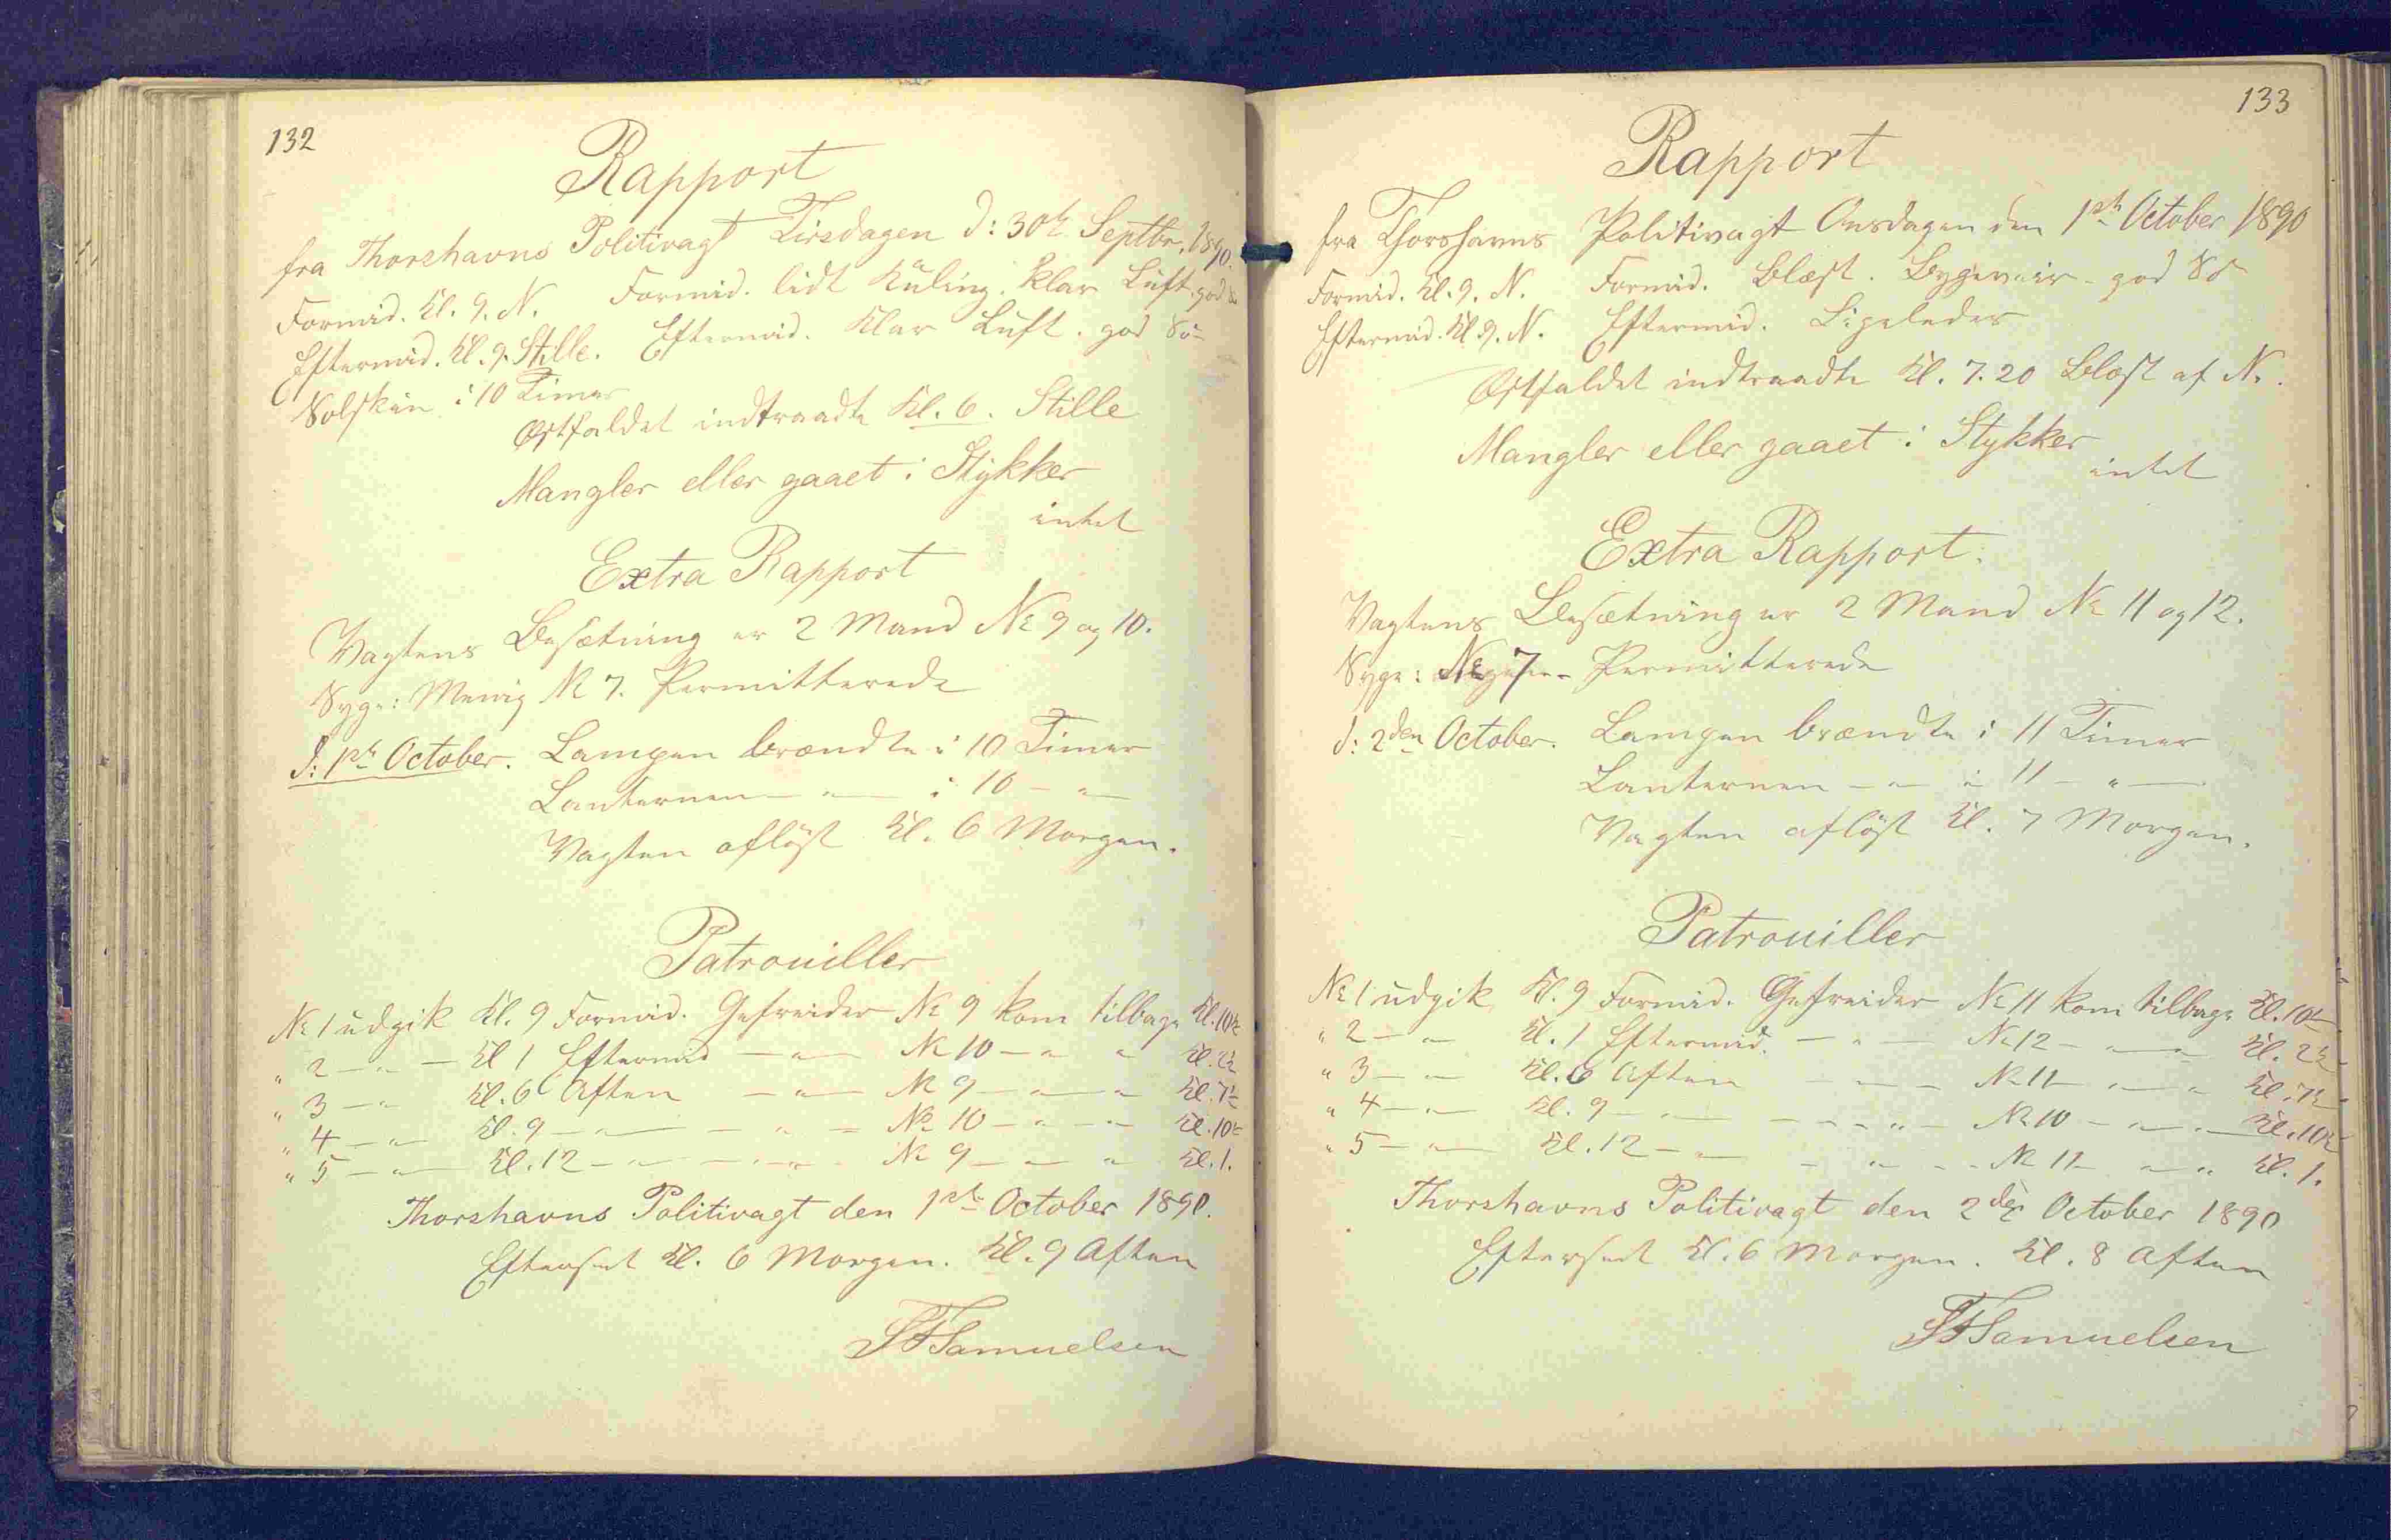 132
Rapport
fra Thorshavns Politivagt Tirsdagen d: 30te Septbr. 1890.
Formid. Kl. 9. N. Formid. lidt Kuling. klar Luft. god Sø
Eftermid. Kl. 9. Stille. Eftermid. Klar Luft. god Sø
Solskin i 10 Timer
Østfaldet indtraadte Kl. 6. Stille
Mangler eller gaaet i Stykker
intet
Extra Rapport
Vagtens Besætning er 2 Mand No 9 og 10.
Syge: Menig No 7. Permitterede
d: 1ste October. Lampen brændte i 10 Timer
Lanternen — " — i 10 — " —
Vagten afløst Kl. 6 Morgen.
Patrouiller
No 1 udgik Kl. 9 Formid. Gefreider No 9 kom tilbage Kl. 10½
" 2 — " — Kl 1 Eftermid — " — No 10 — " " Kl. 2½
" 3 — " Kl. 6 Aften — " — No 9 — " — " Kl. 7½
" 4 — " — Kl. 9 — " — — " — No 10 — " — " Kl. 10½
" 5 — " — Kl. 12 — " — — " — No 9 — " — " Kl. 1.
Thorshavns Politivagt den 1ste October 1890.
Efterseet Kl. 6 Morgen. Kl. 9 Aften
Samuelsen
133
Rapport
fra Thorshavns Politivagt Onsdagen den 1ste October 1890
Formid. Kl. 9. N. Formid. Blæst. Bygeveir - god Sø
Eftermid. Kl. 9. N. Eftermid. Ligeledes
Østfaldet indtraadte Kl. 7.20 Blæst af N.
Mangler eller gaaet i Stykker
intet
Extra Rapport.
Vagtens Besætning er 2 Mand No 11 og 12.
Syge: No 7 - Permitterede
d: 2den October. Lampen brændte i 11 Timer
Lanternen — " — i 11 — " —
Vagten afløst Kl. 7 Morgen.
Patrouiller
No 1 udgik Kl. 9 Formid. Gefreider No 11 kom tilbage Kl. 10½
" 2 — " Kl. 1 Eftermid. — " — No 12 — " — " Kl. 2½
" 3 — " Kl. 6 Aften — " — No 11 — " — " Kl. 7½
" 4 — " Kl. 9 — " — — " — No 10 — " — " Kl. 10½
" 5 — " Kl. 12 — " — " — No 11 — " " Kl. 1.
Thorshavns Politivagt den 2den October 1890
Efterseet Kl. 6 Morgen. Kl. 8 Aften
Samuelsen